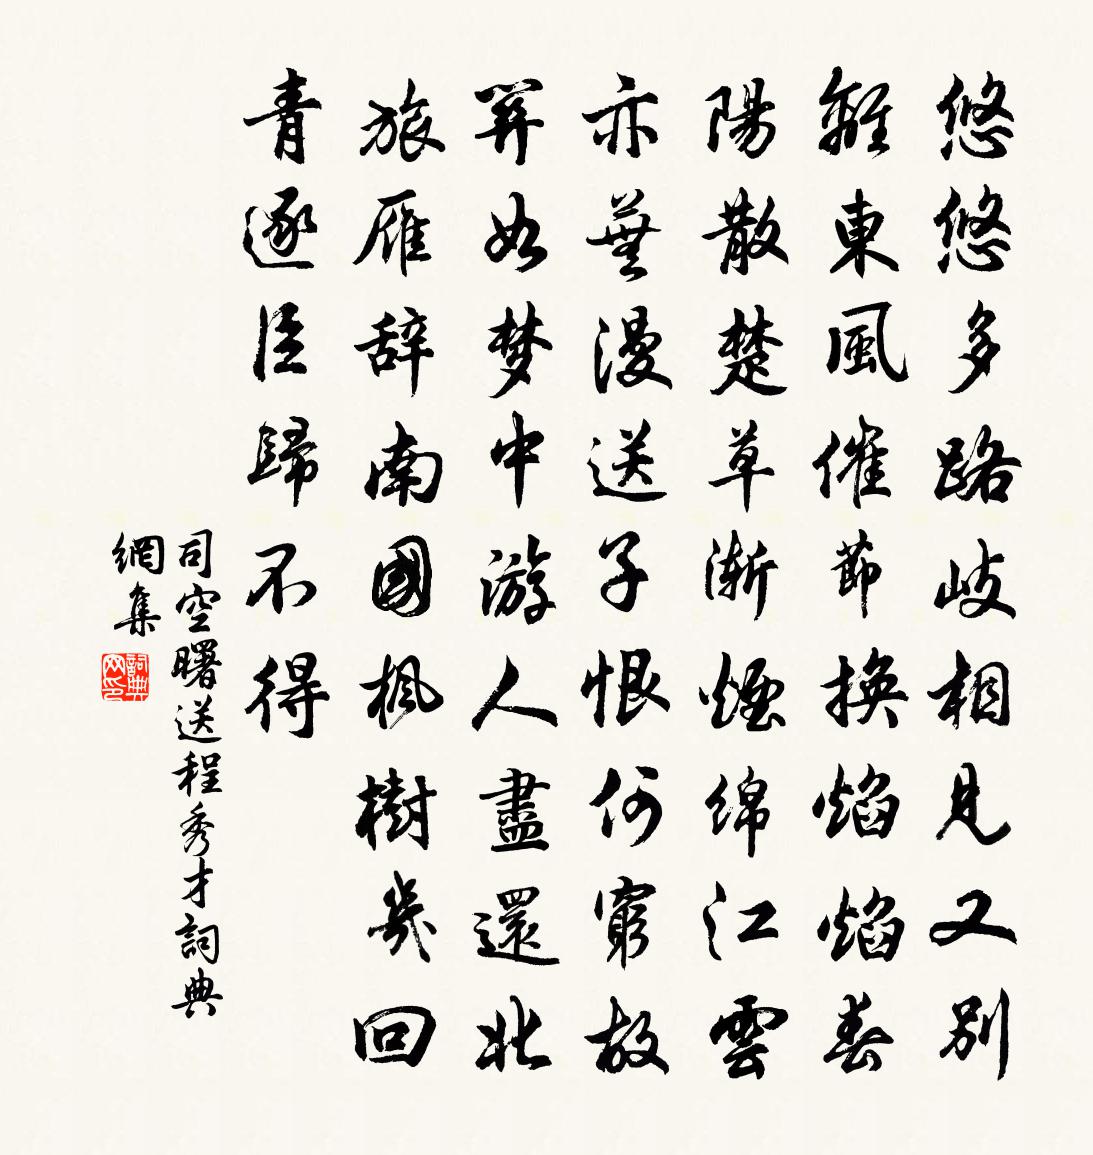 悠悠多路岐相見又別
離東風催節換焰焰春
陽散楚草漸煙綿江雲
亦蕪漫送子恨何窮故
關如梦中游人盡還北
旅雁辞南國楓樹幾回
青逐臣歸不得
司空曙送程秀才詞典
網集
詞典
网印